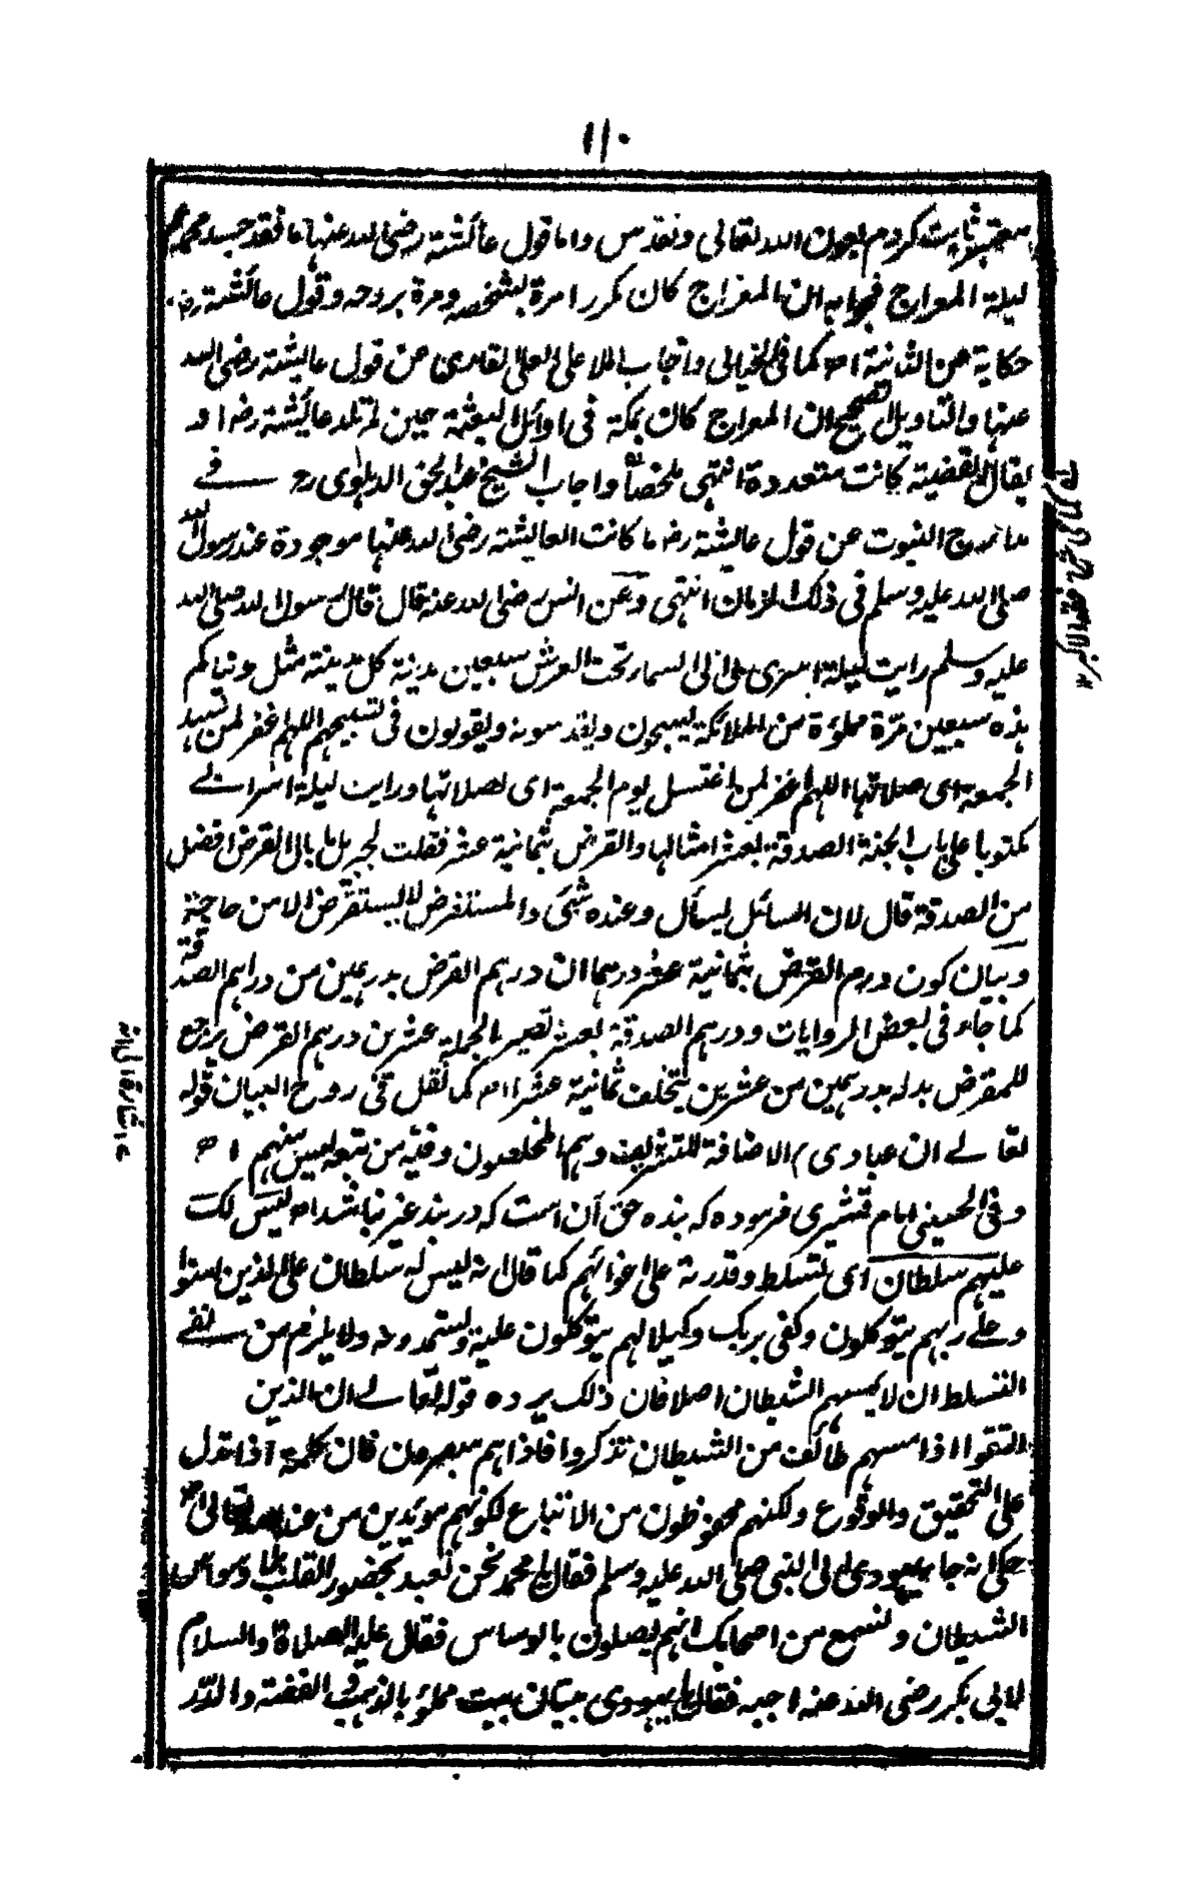 ۱۱۰
معتبر ثابت کردم بعون الله تعالی و تقدس واما قول عائشة رضی الله عنها ما فقد جسد محمد
لیلة المعراج فجوابه ان المعراج کان مکررا مرة بشخصه ومرة بروحه وقول عائشة رض
حکایة عن الثانیة اه کما فی الخیالی واجاب الملا علی القاری عن قول عایشة رضی الله
عنها والتاویل الصحیح ان المعراج کان بمکة فی اوائل البعثة حین لم تلد عائشة رض او
یقال القضیة کانت متعددة انتهی ملخصا واجاب الشیخ عبد الحق الدهلوی رح فی
مدارج النبوت عن قول عایشة رض ما کانت العایشة رضی الله عنها موجودة عند رسول الله
صلی الله علیه وسلم فی ذلک الزمان انتهی وعن انس رضی الله عنه قال قال رسول الله صلی الله
علیه وسلم رایت لیلة اسری بی الی السماء تحت العرش سبعین مدینة کل مدینة مثل دنیاکم
هذه سبعین مرة مملوة من الملائکة یسبحون ویقدسونه ویقولون فی تسبیحهم اللهم اغفر لمن شهد
الجمعة ای صلاتها اللهم اغفر لمن اغتسل یوم الجمعة ای لصلاتها ورایت لیلة اسرای
مکتوبا علی باب الجنة الصدقة بعشر امثالها والقرض بثمانیة عشر فقلت لجبریل ما بال القرض افضل
من الصدقة قال لان السائل یسأل وعنده شیئ والمستقرض لا یستقرض الا من حاجة
وبیان کون درهم القرض بثمانیة عشر درهما ان درهم القرض بدرهمین من دراهم الصدقة
کما جاء فی بعض الروایات ودرهم الصدقة بعشر تصیر الجملة عشرین درهم القرض یرجع
للمقرض بدله بدرهمین من عشرین یتخلف ثمانیة عشر اه کما نقل فی روح البیان قوله
تعالے ان عبادی الاضافة للتشریف وهم المخلصون وفیه من تبعه لیس منهم اه
وفی الحسینی امام قشیری فرموده که بنده حق آن است که در بند غیر نباشد اه لیس لک
علیهم سلطان ای تسلط وقدرة علی اغوائهم کما قال انه لیس له سلطان علی الذین امنوا
وعلے ربهم یتوکلون وکفی بربک وکیلا لهم یتوکلون علیه ویستمدونه ولا یلزم من نفی
التسلط ان لا یمسهم الشیطان اصلا فان ذلک یرده قوله تعالے ان الذین
اتقوا اذا مسهم طائف من الشیطان تذکروا فاذا هم مبصرون فان کلمة اذا تدل
علی التحقیق والوقوع ولکنهم محفوظون من الاتباع لکونهم مویدین من عند الله تعالی اه
حکی انه جاء یهودی الی النبی صلی الله علیه وسلم فقال یا محمد نحن نعبد بحضور القلب بلا وسواس
الشیطان ونسمع من اصحابک انهم یصلون بالوساس فقال علیه الصلاة والسلام
لابی بکر رضی الله عنه اجبه فقال یا یهودی بیتان بیت مملو بالذهب والفضة والدر